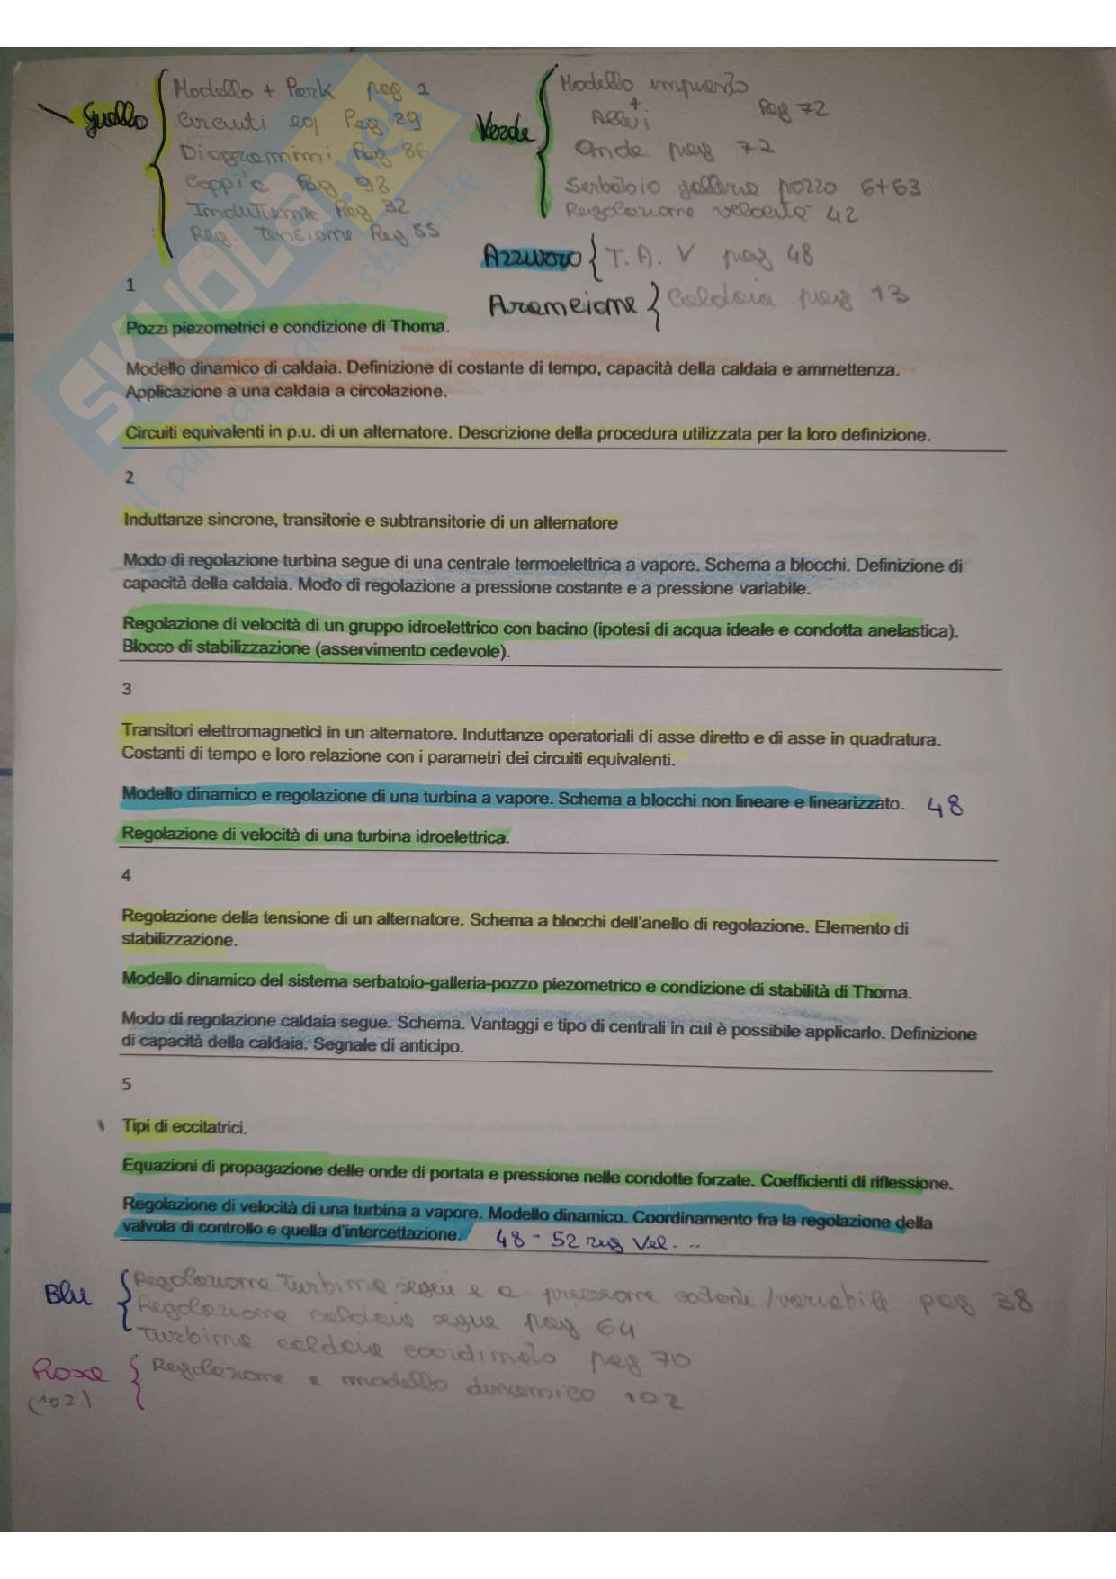 Giallo
Modello + Park pag 1
Circuiti eq Pag 29
Diagrammi Pag 86
Coppie Pag 98
Induttanze Pag 32
Reg. Tensione Pag 55
Verde
Modello impianto
+
Allievi
Pag 72
Onde pag 72
Serbatoio galleria pozzo 6+63
Regolazione velocità 42
Azzurro { T. A. V pag 48
Arancione { Caldaia pag 13
1
Pozzi piezometrici e condizione di Thoma.
Modello dinamico di caldaia. Definizione di costante di tempo, capacità della caldaia e ammettenza.
Applicazione a una caldaia a circolazione.
Circuiti equivalenti in p.u. di un alternatore. Descrizione della procedura utilizzata per la loro definizione.
2
Induttanze sincrone, transitorie e subtransitorie di un alternatore
Modo di regolazione turbina segue di una centrale termoelettrica a vapore. Schema a blocchi. Definizione di
capacità della caldaia. Modo di regolazione a pressione costante e a pressione variabile.
Regolazione di velocità di un gruppo idroelettrico con bacino (ipotesi di acqua ideale e condotta anelastica).
Blocco di stabilizzazione (asservimento cedevole).
3
Transitori elettromagnetici in un alternatore. Induttanze operatoriali di asse diretto e di asse in quadratura.
Costanti di tempo e loro relazione con i parametri dei circuiti equivalenti.
Modello dinamico e regolazione di una turbina a vapore. Schema a blocchi non lineare e linearizzato. 48
Regolazione di velocità di una turbina idroelettrica.
4
Regolazione della tensione di un alternatore. Schema a blocchi dell'anello di regolazione. Elemento di
stabilizzazione.
Modello dinamico del sistema serbatoio-galleria-pozzo piezometrico e condizione di stabilità di Thoma.
Modo di regolazione caldaia segue. Schema. Vantaggi e tipo di centrali in cui è possibile applicarlo. Definizione
di capacità della caldaia. Segnale di anticipo.
5
Tipi di eccitatrici.
Equazioni di propagazione delle onde di portata e pressione nelle condotte forzate. Coefficienti di riflessione.
Regolazione di velocità di una turbina a vapore. Modello dinamico. Coordinamento fra la regolazione della
valvola di controllo e quella d'intercettazione. 48 - 52 reg Vel. ..
Blu
Regolazione turbina segue e a pressione costante/variabile pag 38
Regolazione caldaia segue pag 64
Turbina caldaia coordinato pag 70
Rosa
(102)
Regolazione e modello dinamico 102
SKUOLA.net